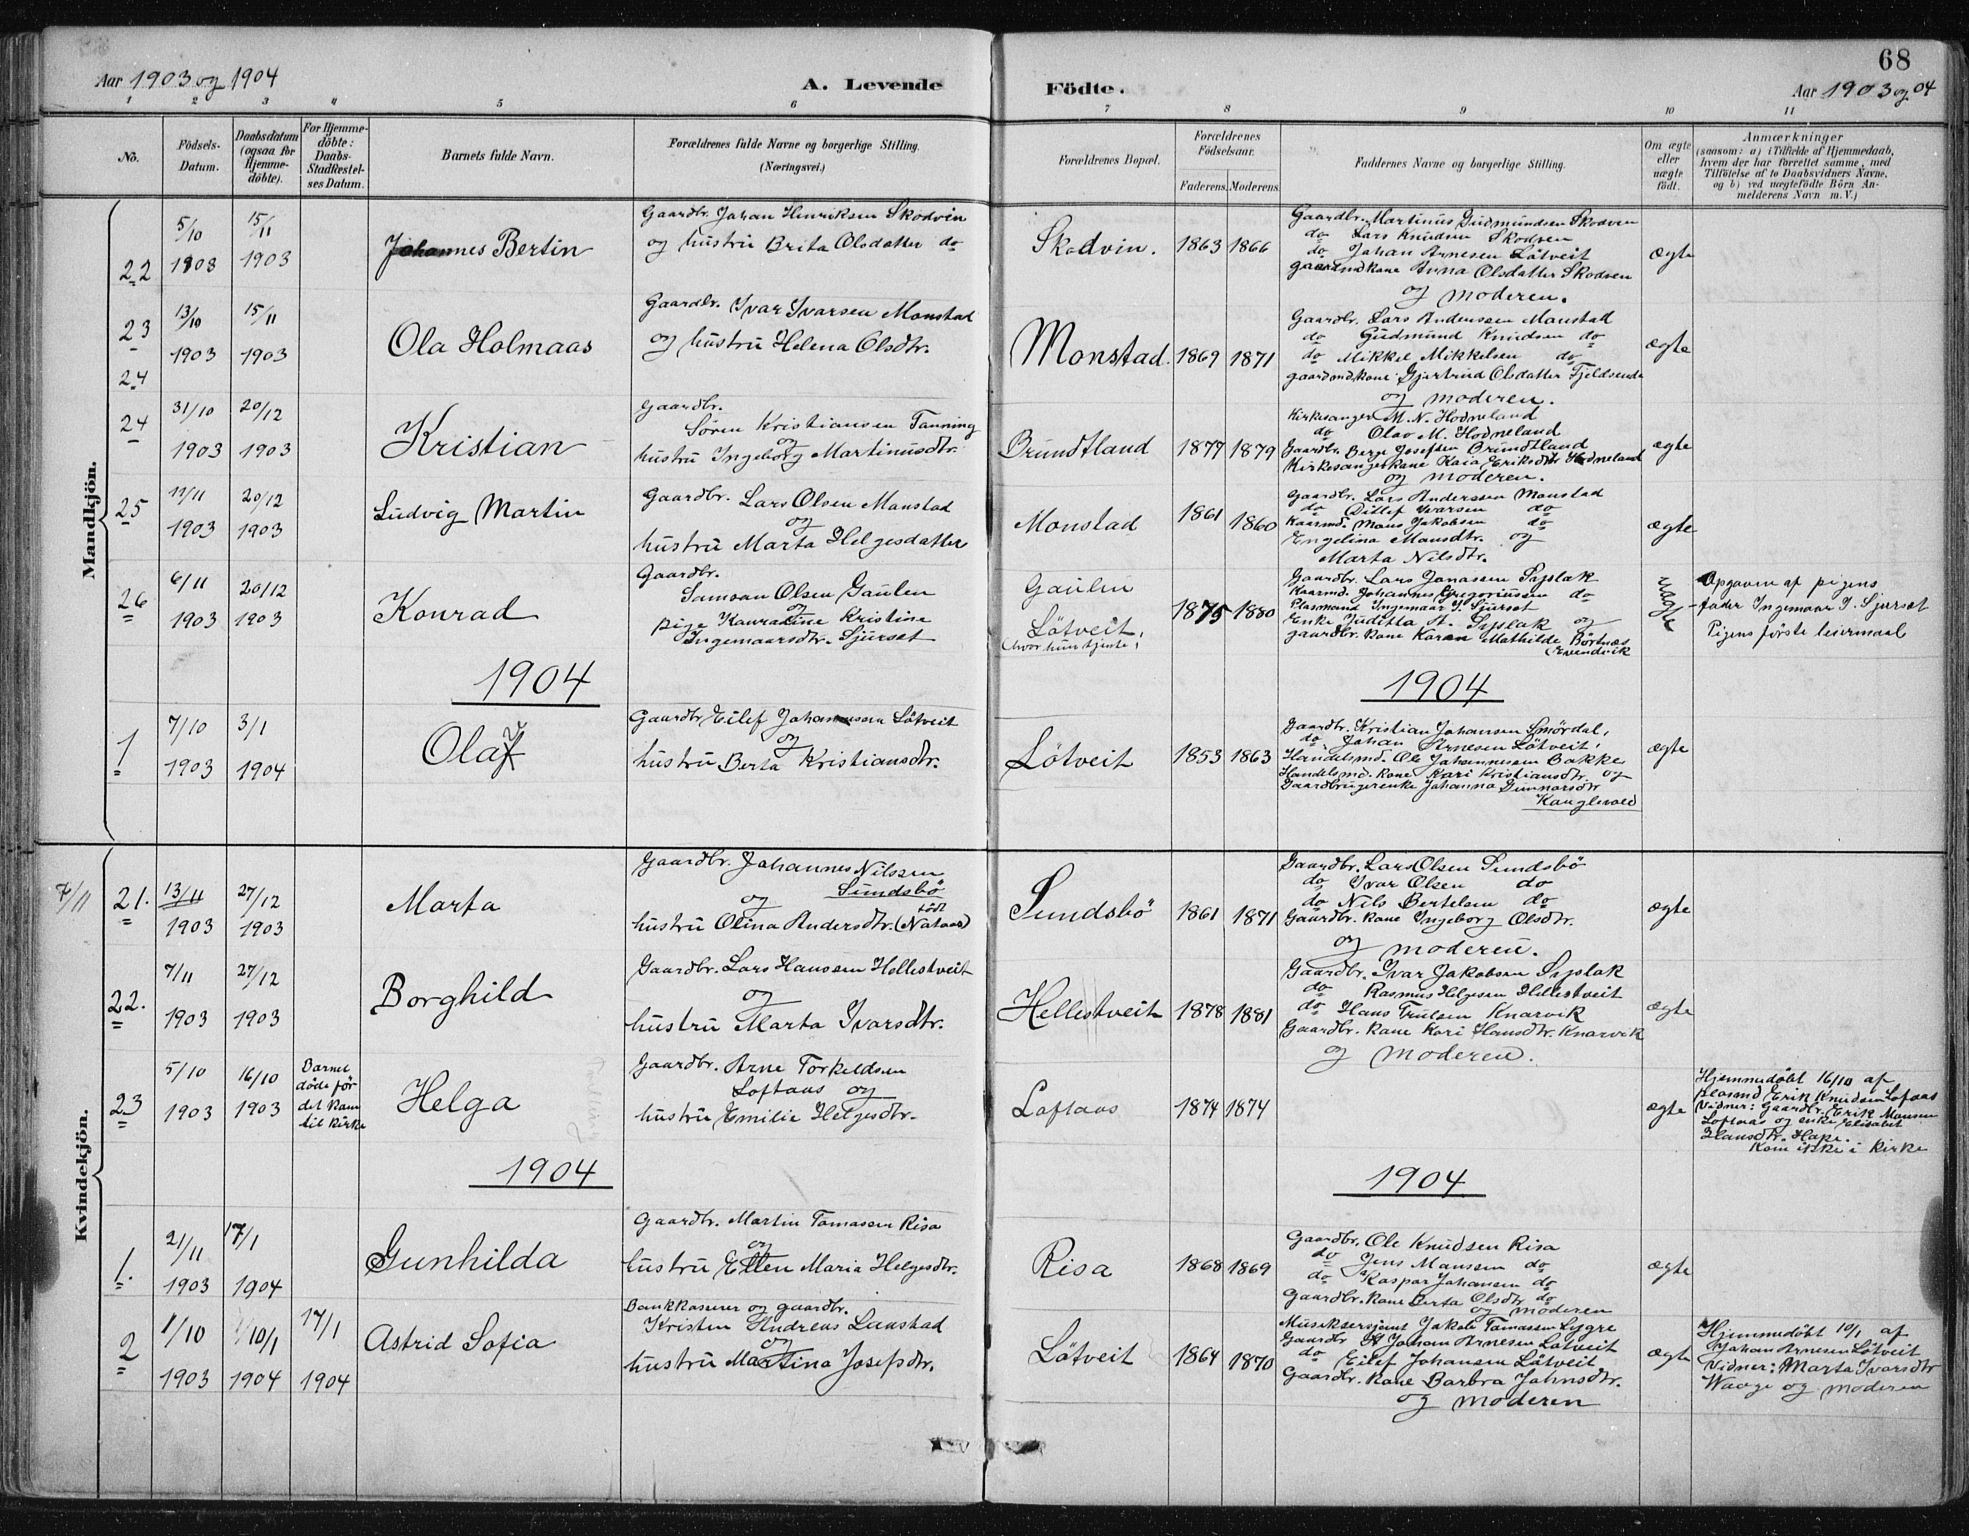 68
Aar 1903 og 1904
A. Levende Födte.
Aar 1903 og 04
1 2 3 4 5 6 7 8 9 10 11
No.
Födsels-Datum.
Daabsdatum (ogsaa for Hjemme-döbte).
For Hjemme-döbte: Daabs-Stadfæstel-ses Datum.
Barnets fulde Navn.
Forældrenes fulde Navne og borgerlige Stilling.
(Næringsvei.)
Forældrenes Bopæl.
Forældrenes Födselsaar.
Faderens. Moderens.
Faddernes Navne og borgerlige Stilling.
Om ægte eller uægte födt.
Anmærkninger
(saasom: a) i Tilfælde af Hjemmedaab,
hvem der har forrettet samme, med
Tilföielse af to Daabsvidners Navne,
og b) ved uægtefödte Börn An-
melderens Navn m. V.)
Mandkjön.
22
5/10 1903
15/11 1903
Johannes Bertin
Gaardbr. Johan Henriksen Skodvin
og hustru Brita Olsdatter do
Skodvin.
1863 1866
Gaardbr. Martinus Gudmundsen Skodven
do Lars Knudsen Skodven
do Johan Arnesen Lötveit
gaardmdkone Anna Olsdatter Skodven
og moderen.
ægte
23
13/10 1903
15/11 1903
Ola Holmaas
Gaardbr. Ivar Ivarsen Monstad
og hustru Helena Olsdtr.
Monstad.
1869 1871
Gaardbr. Lars Anderssen Monstad
do Gudmund Knudsen do
do Mikkel Mikkelsen do
gaardmdkone Gjertrud Olsdatter Fjeldsende
og moderen.
ægte
24
24
31/10 1903
20/12 1903
Kristian
Gaardbr.
Sören Kristiansen Tanning
og
hustru Ingeborg Martinusdtr.
Brundtland
1877 1879
Kirkesanger M. N. Hodneland
do Olav M. Hodneland
Gaardbr. Berge Josefsen Brundtland
Kirkesangerkone Kaia Eriksdtr Hodneland
og moderen.
ægte
25
11/11 1903
20/12 1903
Ludvig Martin
Gaardbr. Lars Olsen Monstad
og
hustru Marta Helgesdatter
Monstad
1861 1860
Gaardbr. Lars Anderssen Monstad
do Ditlef Ivarsen do
Kaarmd. Mons Jakobsen do
Engelina Monsdtr. og
Marta Nilsdtr.
ægte
26
6/11 1903
20/12 1903
Konrad
Gaardbr.
Samson Olsen Gaulen
og
pige Konradine Kristine
Ingemaarsdtr. Sjurset
Gaulen
Lötveit,
(hvor hun tjente)
1875 1880
Gaardbr. Lars Jonassen Syslak
Kaarmd. Johannes Gregoriussen do
Plasmand Ingemaar J. Sjurset
Enke Juditta A. Syslak og
gaardbr. kone Karen Mathilde Börtnæs
Evendvik
uægte
Opgaven af pigens
fader Ingemaar J. Sjurset
Pigens förste leiermaal
1904
1904
1
7/10 1903
3/1 1904
Olaf
Gaardbr Eilef Johannesen Lötveit
og
hustru Berta Kristiansdtr.
Lötveit
1853 1863
Gaardbr. Kristian Johansen Smördal,
do. Johan Arnesen Lötveit,
Handelsmd. Ole Johannessen Bakke
Handelsmd. kone Kari Kristiansdtr. og
Gaardbrugerenke Johanna Gunnarsdtr
Kanglevold
ægte
Kvindekjön.
7/11
21.
13/11 1903
27/12 1903
Marta
Gaardbr. Johannes Nilssen
Sundsbö
og
födt
hustru Olina Andersdtr. (Nataas)
Sundsbö
1861 1871
Gaardbr. Lars Olsen Sundsbö
do Ivar Olsen do
do Nils Bertelsen do
Gaardbr. kone Ingeborg Olsdtr.
og moderen.
ægte
22.
7/11 1903
27/12 1903
Borghild
Gaardbr. Lars Hanssen Hellestveit
og
hustru Marta Ivarsdtr.
Hellestveit
1878 1881
Gaardbr. Ivar Jakobsen Syslak
do Rasmus Helgesen Hellestveit
do Hans Trulsen Knarvik
Gaardbr. kone Kari Hansdtr. Knarvik
og moderen.
ægte
23
5/10 1903
16/10 1903
Barnet
döde för
det kom
til kirke
Helga
Gaardbr. Arne Torkeldsen
Loftaas og
hustru Emilie Helgesdtr.
Loftaas
1874 1874
ægte
Hjemmedöbt 16/10 af
plasmd Erik Knudsen Lofaas
Vidner: Gaardbr. Erik Monsen
Loftaas og enke Elisabet
Hansdtr. Hope.
Kom ikke i kirke
1904
1904
1.
21/11 1903
17/1 1904
Gunhilda
Gaardbr. Martin Tomassen Risa
og
hustru Ellen Maria Helgesdtr.
Risa
1868 1869
Gaardbr. Ole Knudsen Risa
do Jens Monsen do
do Kaspar Johansen do
Gaardbr. kone Berta Olsdtr do
og moderen
ægte
2
1/10 1903
10/1 1904
17/1 1904
Astrid Sofia
Bankkaserer og gaardbr.
Kristen Andreas Lanstad
og
hustru Martina Josefsdtr.
Lötveit
1864 1870
Musiksersjant Jakob Tomassen Lygre
Gaardbr Johan Arnesen Lötveit
do Eilef Johansen Lötveit
Gaardbr. kone Barbra Johnsdtr.
og moderen
ægte
Hjemmedöbt 10/1 af
Johan Arnesen Lötveit
Vidner: Marta Ivarsdtr
Waage og moderen